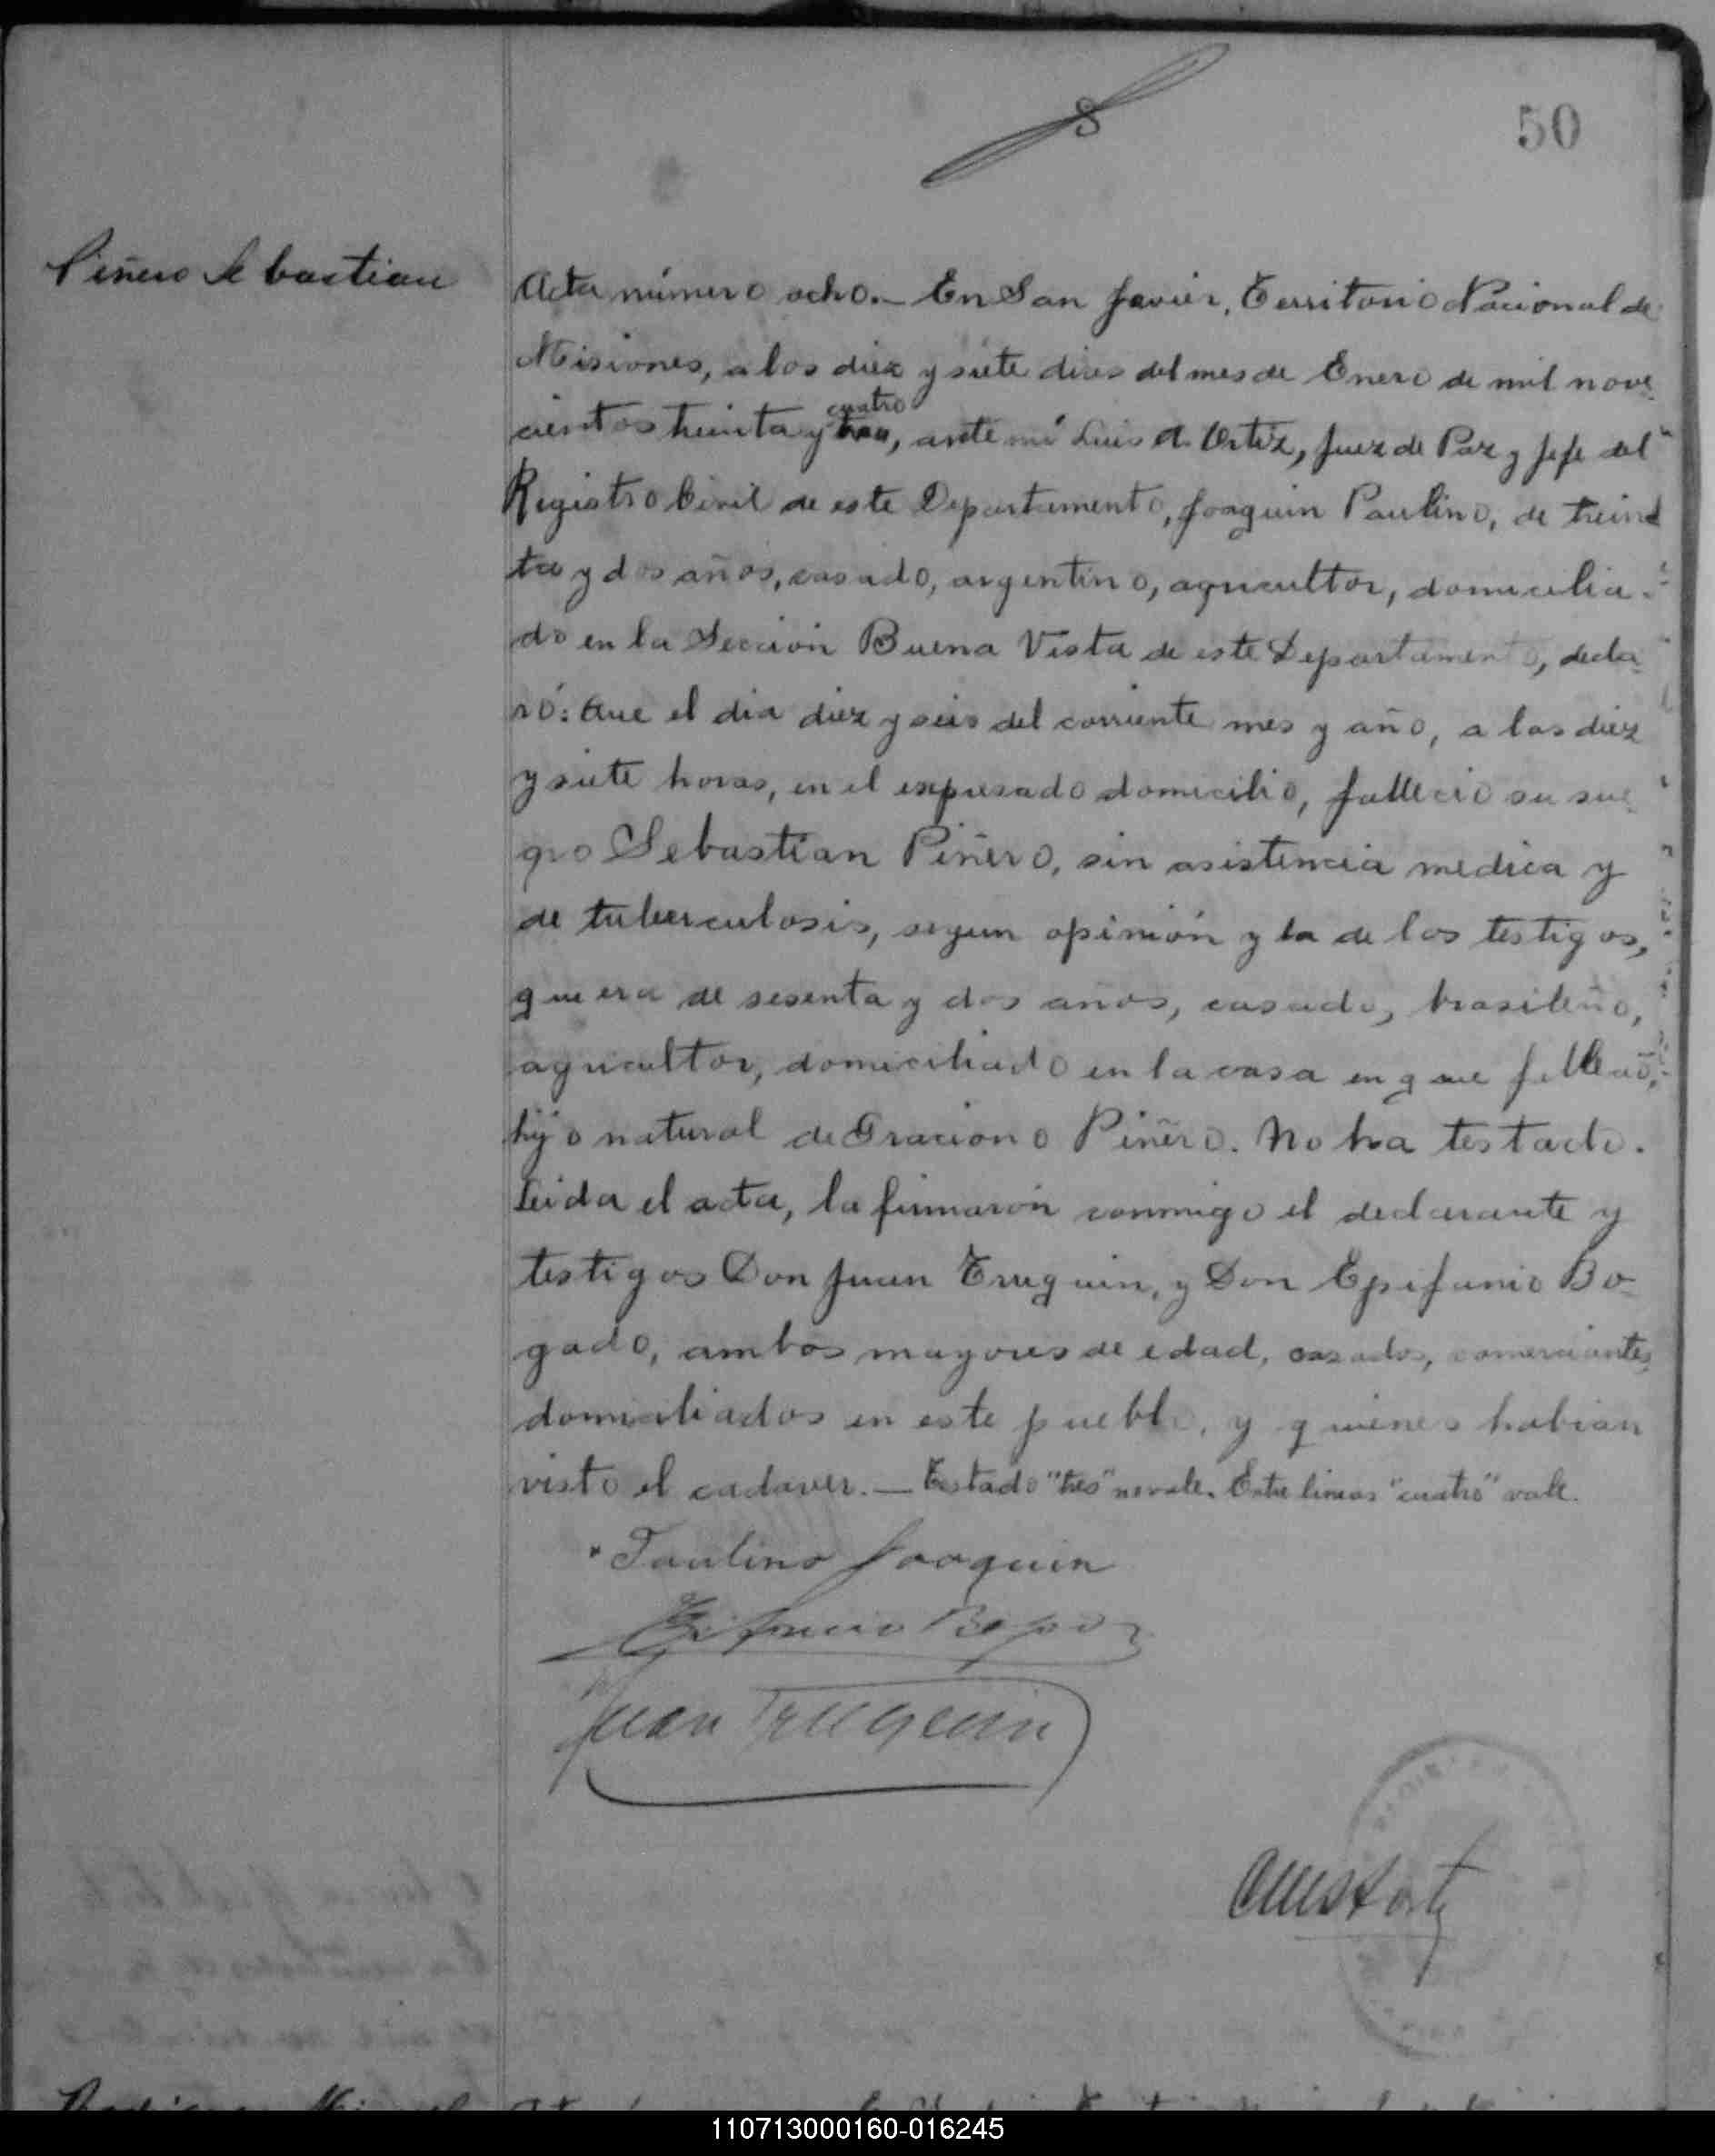 8
50
Piñero Sebastian
Acta número ocho.— En San Javier, Territorio Nacional de
Misiones, a los diez y siete dias del mes de Enero de mil nove
cuatro
cientos treinta y tres, ante mi Luis A. Ortiz, Juez de Paz y Jefe del
Registro Civil de este Departamento, Joaquin Paulino, de trein
ta y dos años, casado, argentino, agricultor, domicilia-
do en la Sección Buena Vista de este Departamento, decla
ró: Que el dia diez y seis del corriente mes y año, a las diez
y siete horas, en el expresado domicilio, fallecio su sue
gro Sebastian Piñero, sin asistencia medica y
de tuberculosis, segun opinión y la de los testigos,
que era de sesenta y dos años, casado, brasileño,
agricultor, domiciliado en la casa en que falleció,
hijo natural de Graciono Piñero. No ha testado.
Leida el acta, la firmaron conmigo el declarante y
testigos Don Juan Truguin, y Don Epifanio Bo-
gado, ambos mayores de edad, casados, comerciantes,
domiciliados en este pueblo, y quienes habian
visto el cadaver.— Testado "tres" no vale. Entre lineas "cuatro" vale.
Paulino Joaquin
Epifanio Bogado
Juan Truguin
110713000160-016245